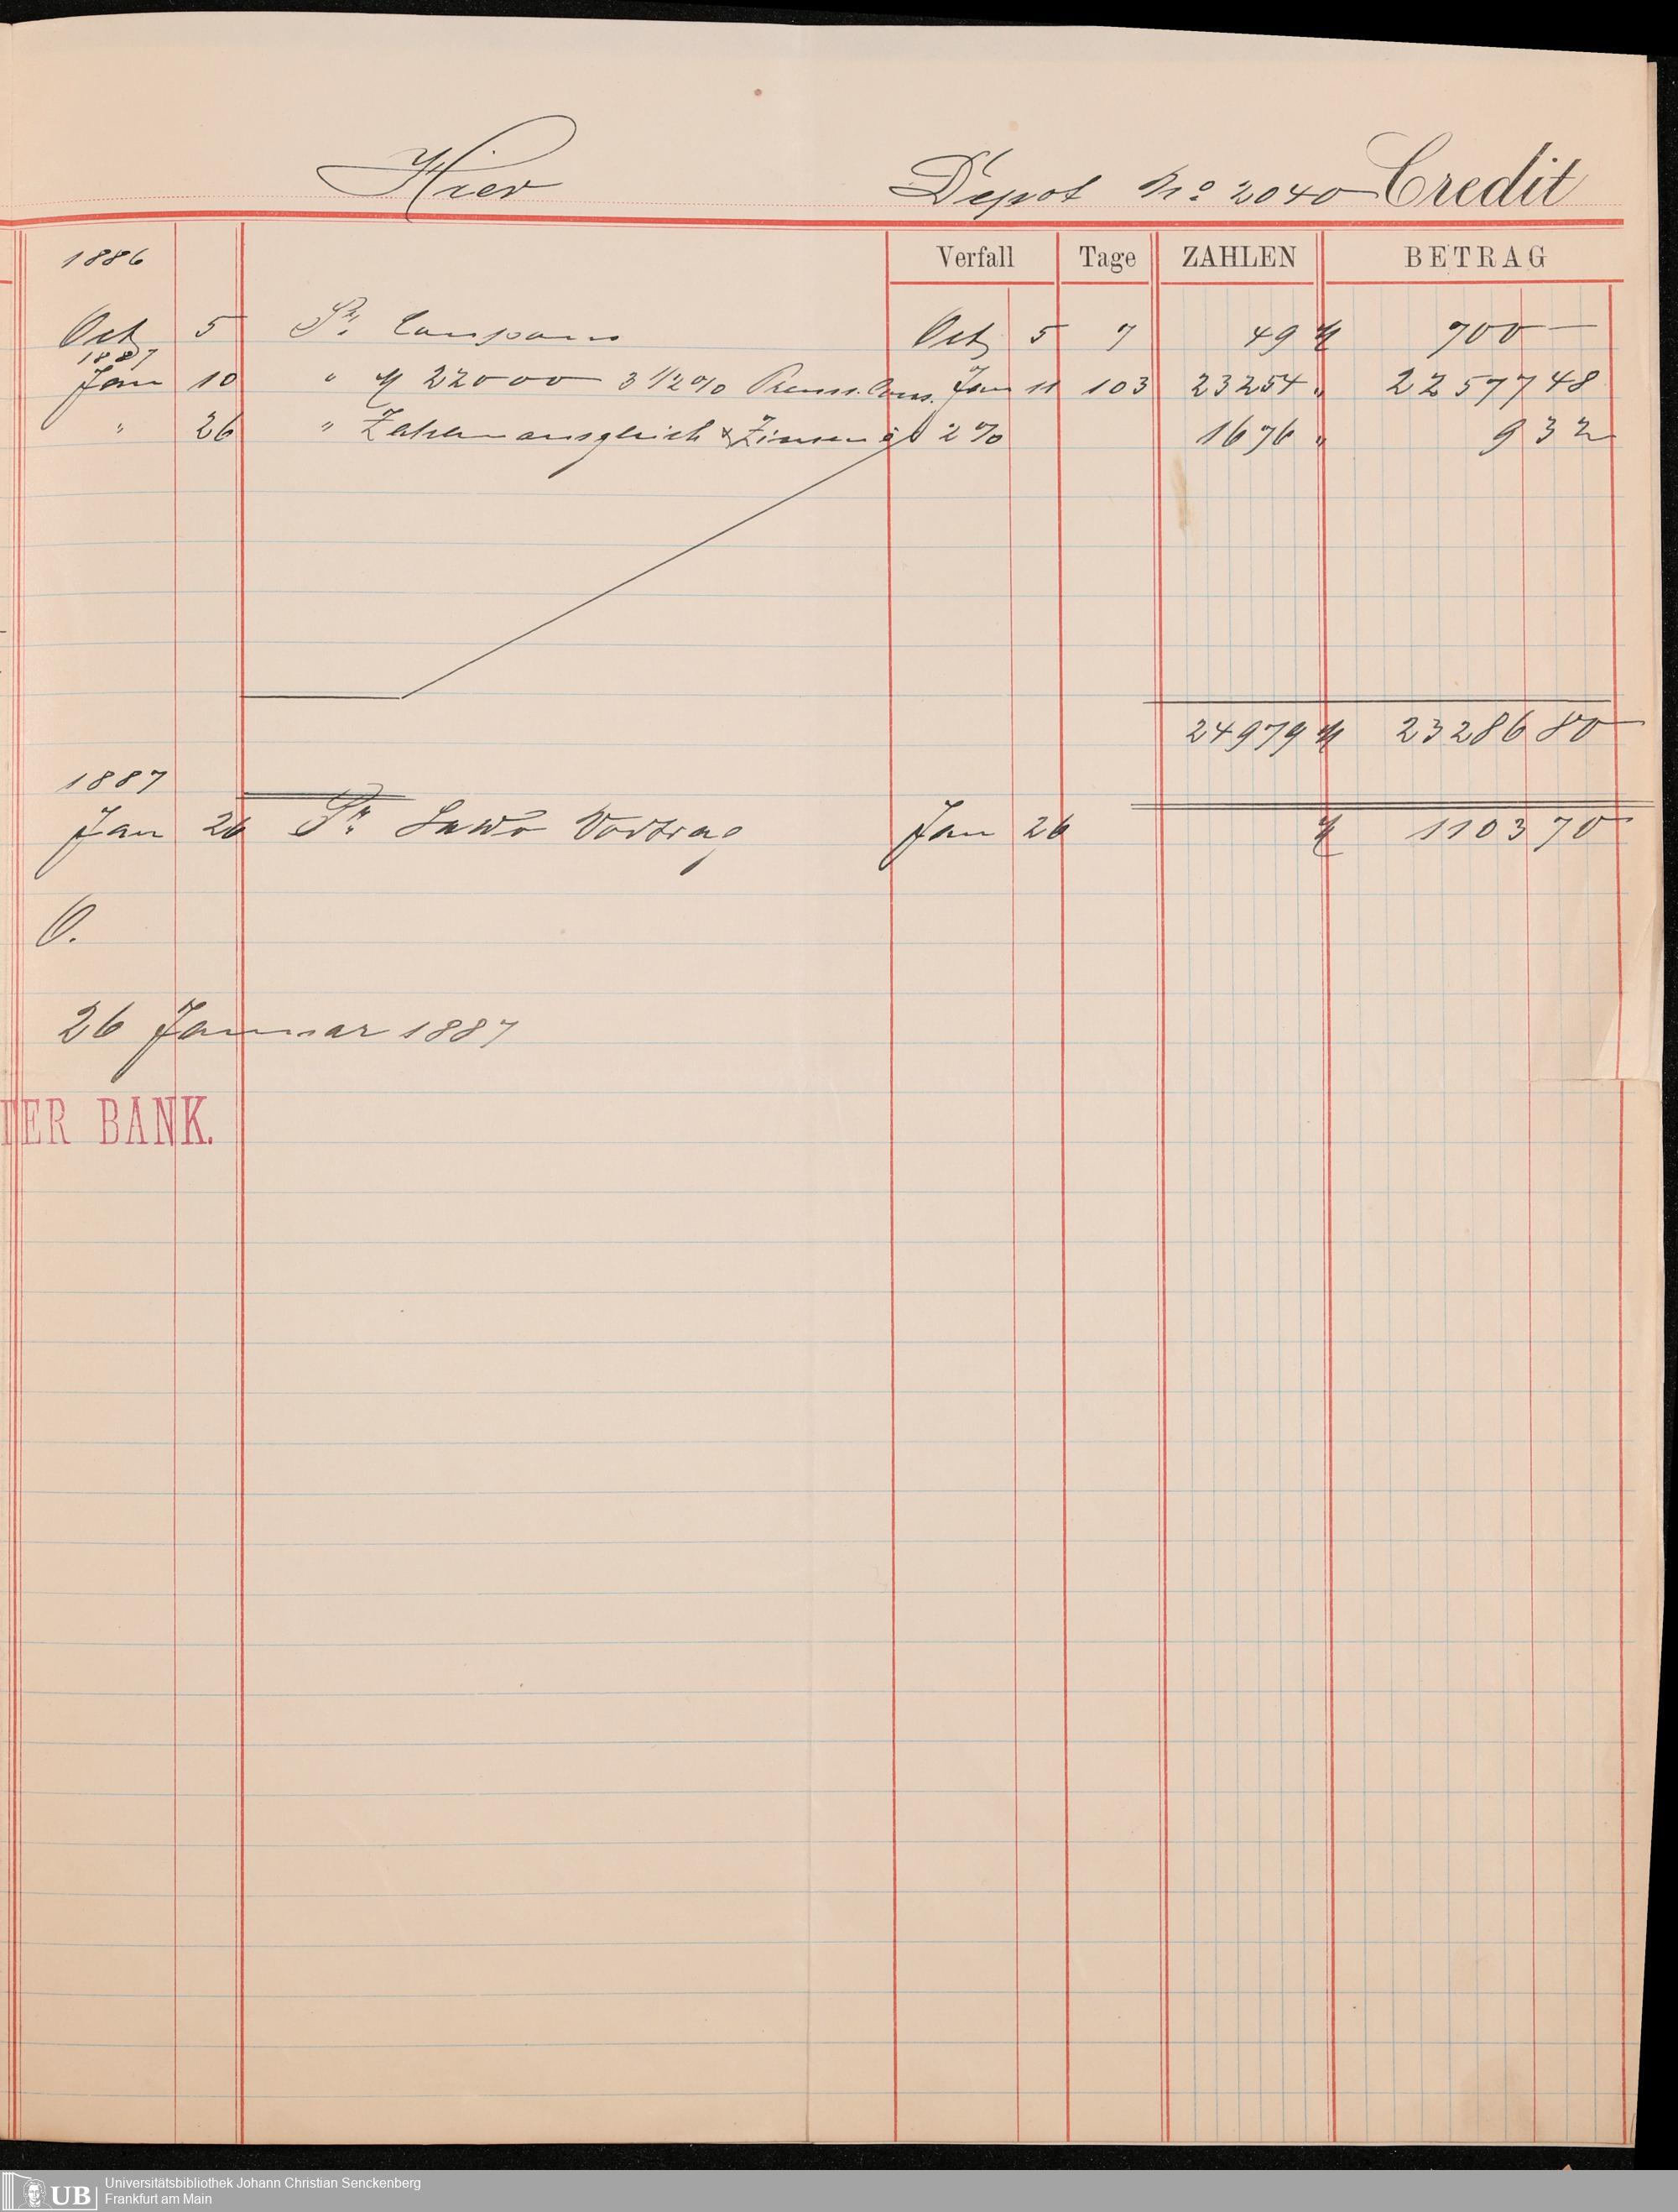 Hier Depot No 2040 Credit
1886 Verfall Tage ZAHLEN BETRAG
Oct 5 Pr. Coupons Oct 5 7 49 M 700 —
1887
Jan 10 " M 22000 3 1/2 % Preuss. Cons. Jan 11 103 23254 " 22577 48
" 26 " Zahlenausgleich & Zinsen à 2 % 1676 " 9 32
24979 M 23286 80
1887
Jan 26 Pr. Saldo Vortrag Jan 26 M 1103 70
O.
26 Januar 1887
DER BANK.
UB Universitätsbibliothek Johann Christian Senckenberg
Frankfurt am Main